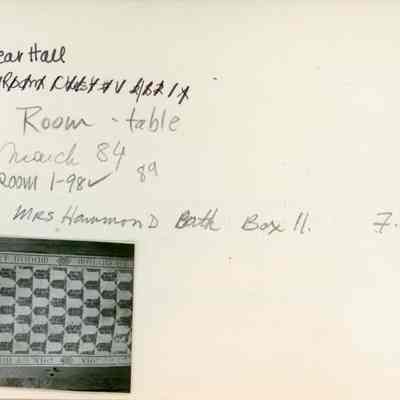 ear Hall
Room - table
March 84
ROOM 1-98✓ 89
MRS HAMMOND Bath Box 11. 7.